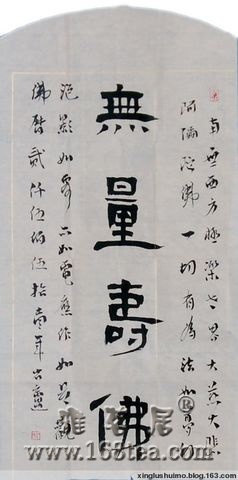 南無西方極樂世界大慈大悲
阿彌陀佛一切有為法如夢幻
無量壽佛
泡影如露亦如電應作如是觀
佛曆貳仟伍佰伍拾壹年
www.168tea.com
xinglushuimo.blog.163.com